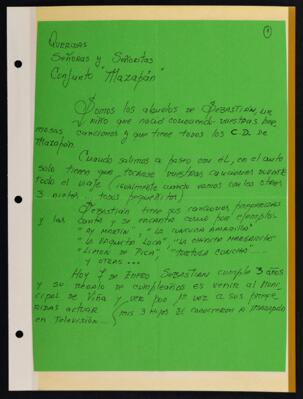 1
Queridas
Señoras y Señoritas
Conjunto "Mazapán"
Somos los abuelos de Sebastián, un
niño que nació conociendo vuestras her
mosas canciones y que tiene todos los C.D. de
Mazapán.
Cuando salimos a paseo con él, en el auto
solo tienen que tocarse vuestras canciones durante
todo el viaje (igualmente cuando vamos con los otros
3 nietos, todos pequeñitos)
Sebastián tiene sus canciones preferidas
y las canta y se encanta como por ejemplos
"Sn Martín", "La Cuncuna Amarilla"
"La Vaquita Loca", "La Chanchita Margarita"
"Limón de Pica", "Tortuga Concha....
y otras...
Hoy 7 de Enero Sebastián cumple 3 años
y su regalo de cumpleaños es venir al Muni
cipal de Viña y ver por 1ª vez a sus prefe
ridas actuar (mis 3 hijos le conocieron a Mazapán
en Televisión...